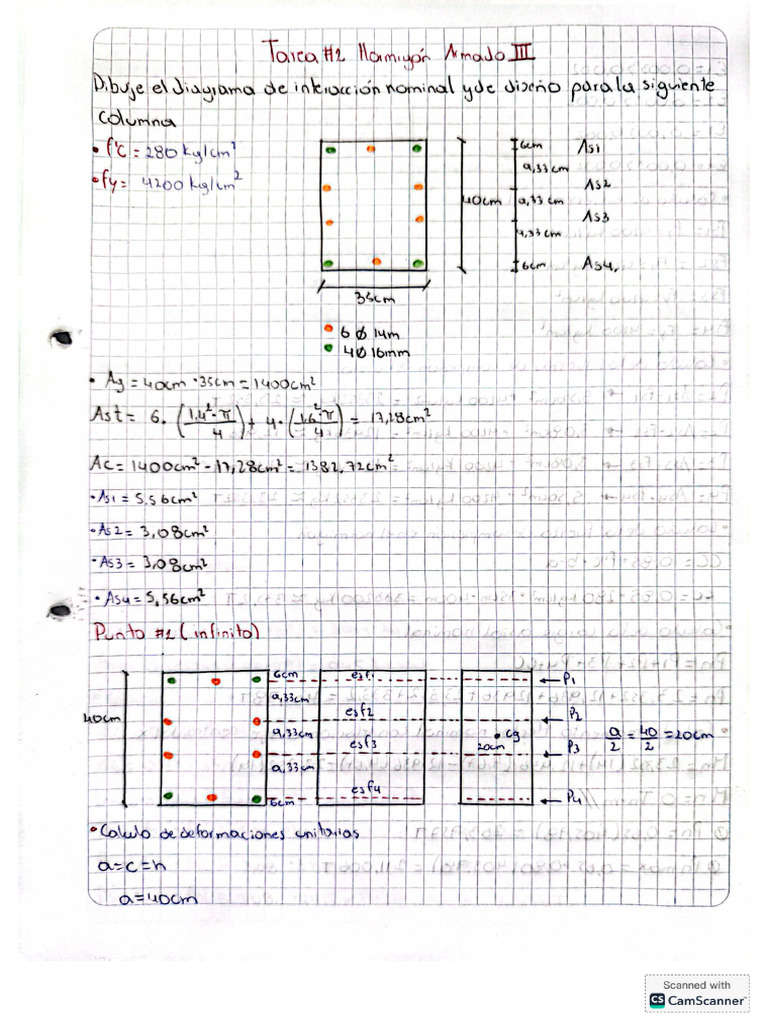 Tarea #2 Hormigón Armado III
Dibuje el diagrama de interacción nominal y de diseño para la siguiente
columna
• f'c = 280 kg/cm²
• fy = 4200 kg/cm²
6cm As1
9,33 cm
As2
40cm 9,33 cm
As3
9,33 cm
6cm As4
35cm
6 Ø 14m
4Ø16mm
• Ag = 40cm · 35cm = 1400cm²
Ast = 6 · (1.4² · π / 4) + 4 · (1.6² · π / 4) = 17,28cm²
Ac = 1400cm² - 17,28cm² = 1382.72cm²
• As1 = 5.56cm²
• As2 = 3,08cm²
• As3 = 3,08cm²
• As4 = 5,56cm²
Punto #1 (infinito)
6cm esf1 P1
9,33 cm
40cm esf2 P2
9,33 cm cg a/2 = 40/2 = 20cm
esf3 20cm P3
9,33 cm
esf4 P4
6cm
• Calculo de deformaciones unitarias
a=c=h
a=40cm
Scanned with
CS CamScanner